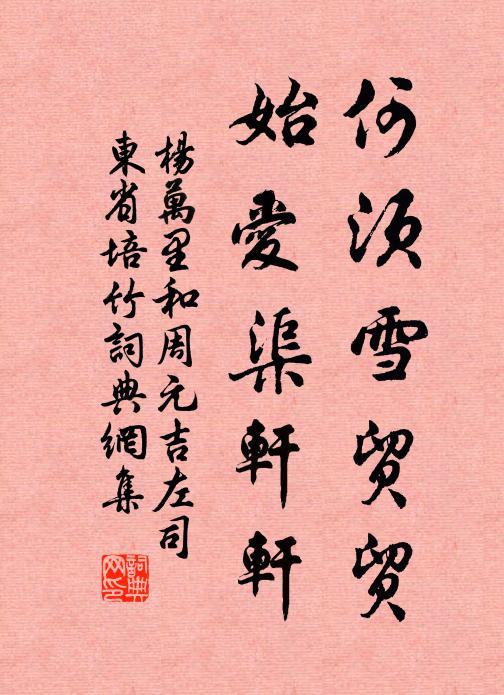 何須雪貿貿
始愛渠軒軒
楊萬里和周元吉左司
東省培竹詞典網集
詞典网印